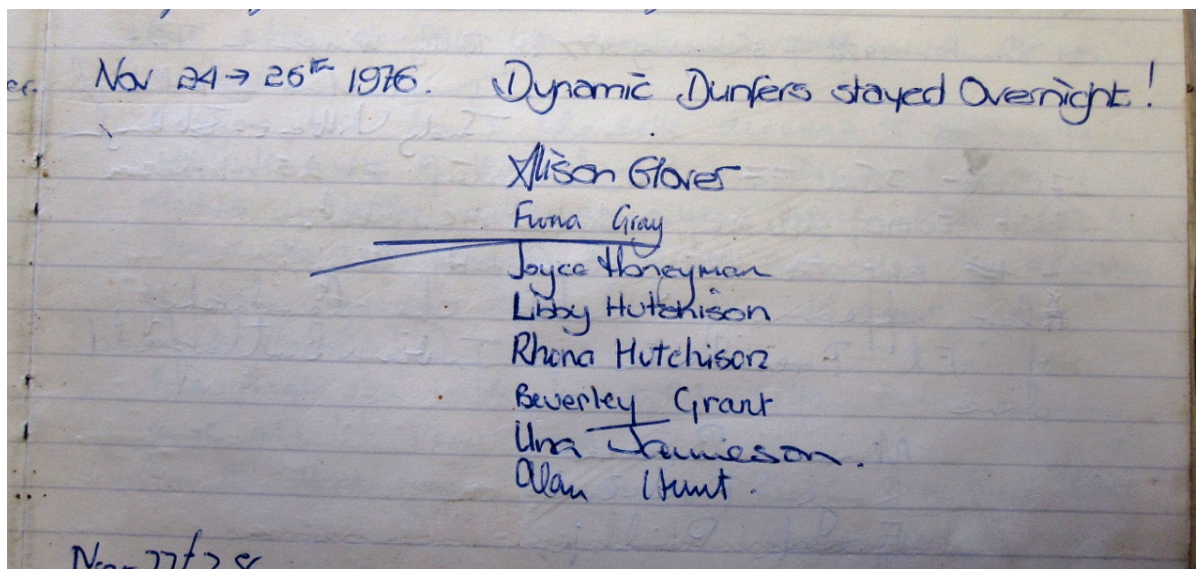 Nov 24 → 26th 1976. Dynamic Dunfers stayed Overnight!
Alison Glover
Fiona Gray
Joyce Honeyman
Libby Hutchison
Rhona Hutchison
Beverley Grant
Una Jamieson.
Alan Hunt.
Nov 27/28